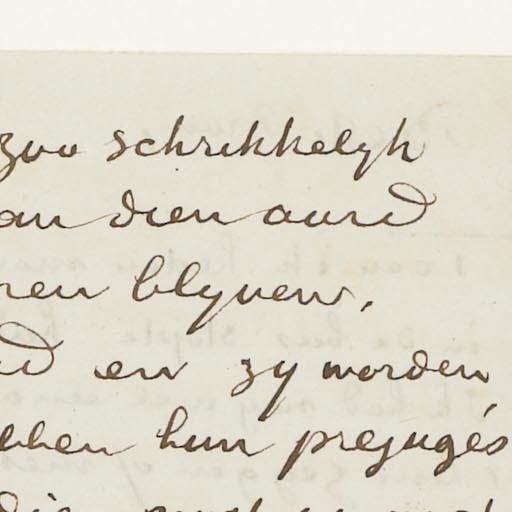 zoo schrikkelyk
an dien aard
ren blyven,
en zy worden,
ebben hun prejugés